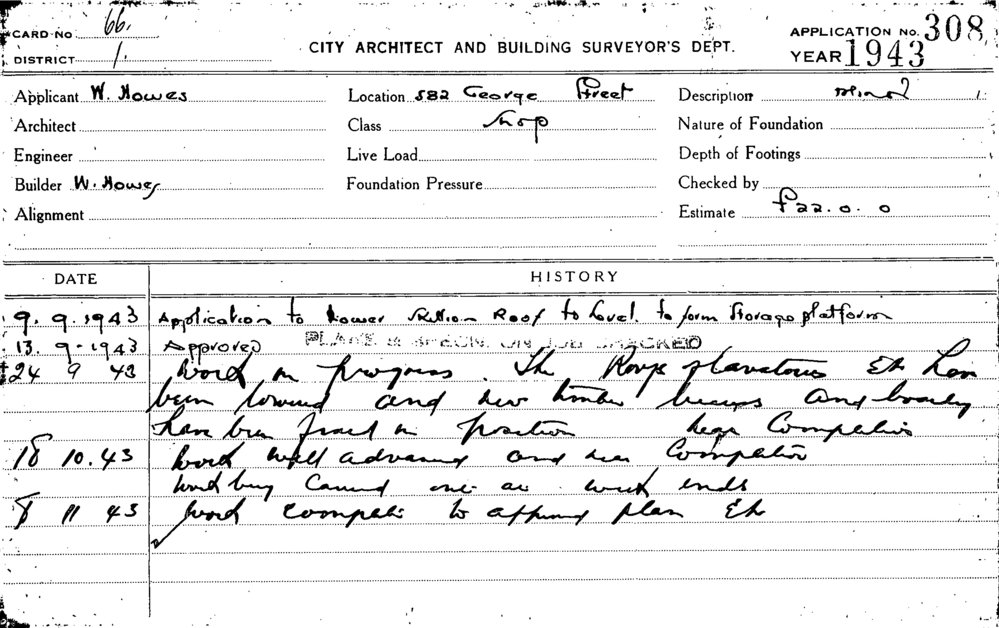 CARD No 66.
DISTRICT 1.
CITY ARCHITECT AND BUILDING SURVEYOR'S DEPT.
APPLICATION No. 308
YEAR 1943
Applicant W. Howes Location 582 George Street Description minor
Architect Class Shop Nature of Foundation
Engineer Live Load Depth of Footings
Builder W. Howes Foundation Pressure Checked by
Alignment Estimate £22. 0. 0
DATE HISTORY
9. 9. 1943 Application to Lower Skillion Roof to Level. to form Storage platform
13. 9-1943 Approved PLANS & SPECN. ON JOB CHECKED
24 9 43 Work in progress. The Roof Etc have
been lowered and new timber beams and
have been fixed in position near Completion
18 10.43 Work well advanced and near Completion
Work being Carried out at week ends
8 11 43 Work complete to approved plan Etc